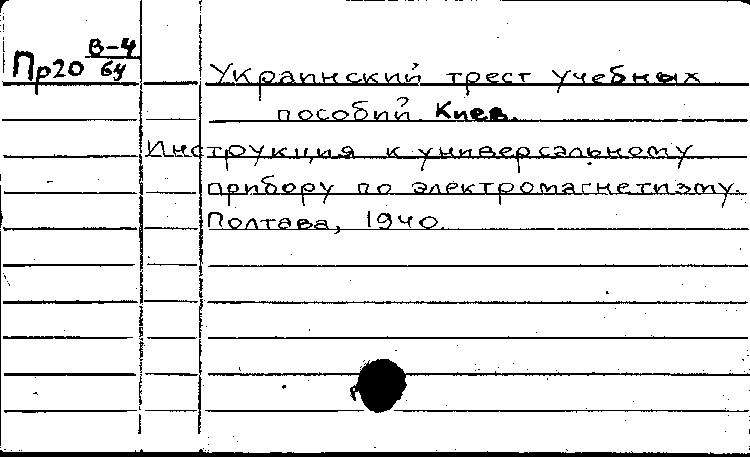 Пр20 В-4/64
Украинский трест учебных
пособий Киев.
Инструкция к универсальному
прибору по электромагнетизму.
Полтава, 1940.